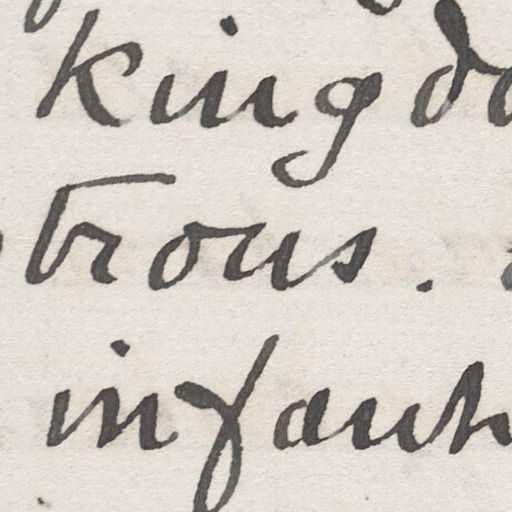 kingdo
trous.
infant